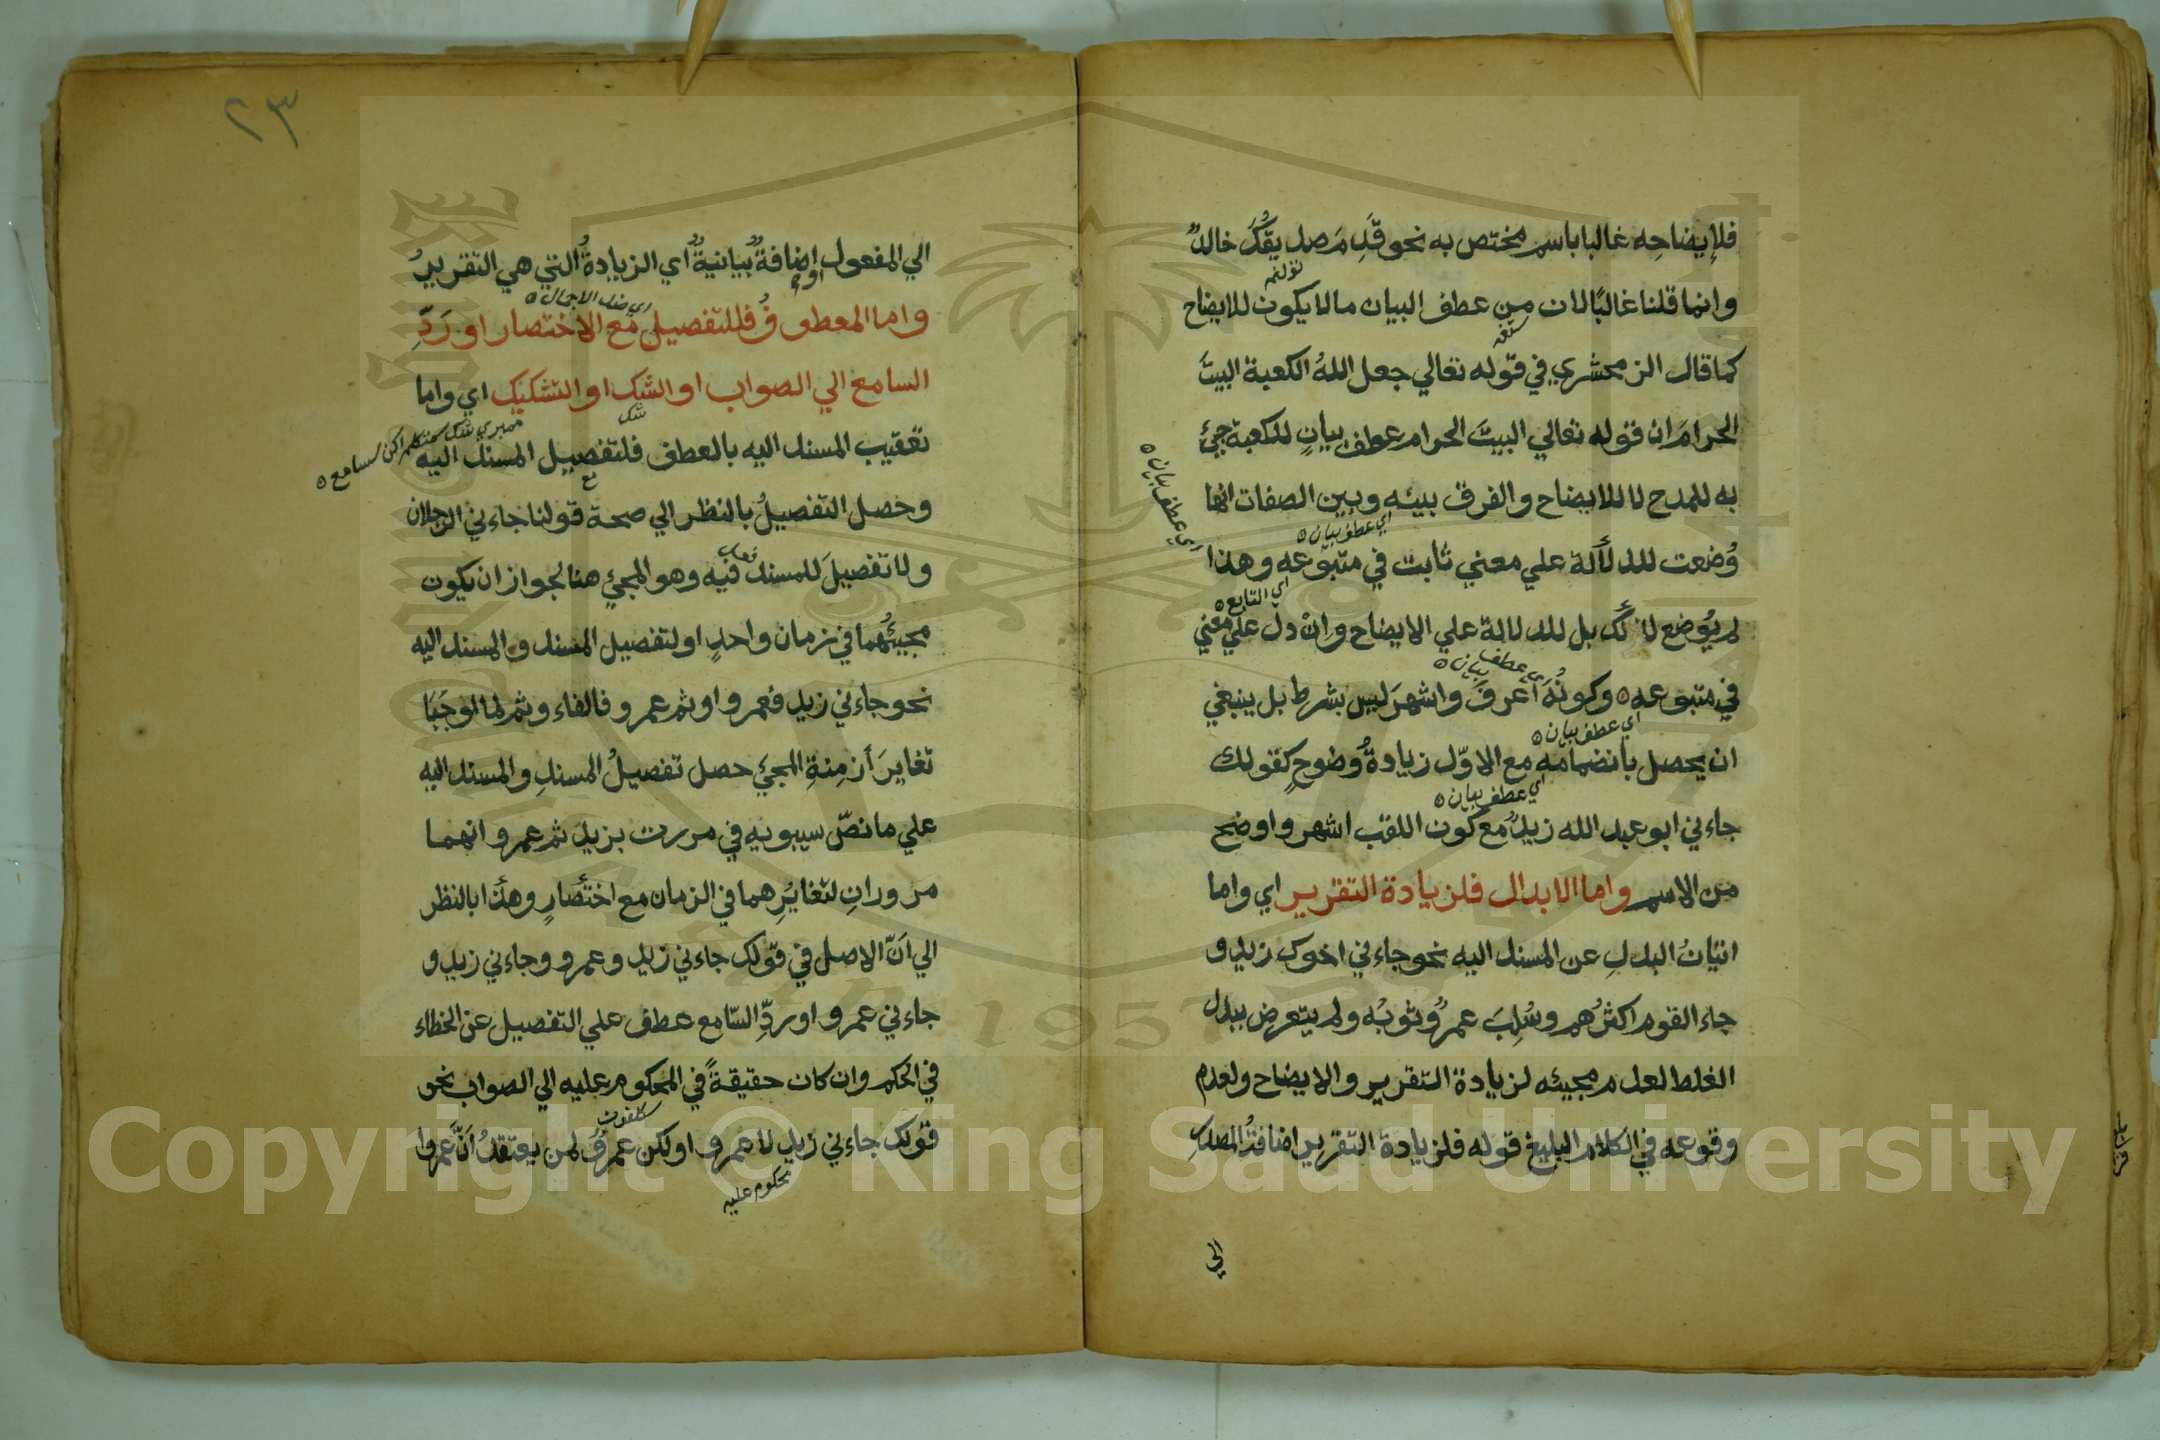 فلإيضاحِه غالبا باسم مختص به نحو قَدِمَ صديقُكَ خالدٌ
وانما قلنا غالبًا لان من عطف البيان ما لا يكون للايضاح
كما قال الزمخشري في قوله تعالي جعل اللهُ الكعبة البيتَ
الحرامَ ان قوله تعالي البيتَ الحرام عطف بيانٍ للكعبة جئ
به للمدح لا للايضاح والفرق بينه وبين الصفات انها
اي عطف بيان ٥
وُضعت للدلالة علي معني ثابت في متبوعه وهذا
اي عطف بيان ٥
لم يُوضع لذلك بل للدلالة علي الايضاح وانْ دلّ علي معني
اي التابع ٥
في متبوعه ٥ وكونُهُ أعرفَ واشهرَ ليس بشرط بل ينبغي
اي عطف بيان ٥
ان يحصل بانضمامه مع الاوّل زيادةُ وُضوحٍ كقولك
اي عطف بيان ٥
جاءني ابو عبد الله زيدٌ مع كون اللقب اشهر واوضح
اي عطف بيان ٥
من الاسم واما الابدال فلزيادة التقرير اي واما
اتيانُ البدلِ عن المسند اليه نحو جاءني اخوك زيد و
جاء القوم اكثرُهم وسُلِبَ عمرٌو ثوبُه ولم يتعرض ببدل
الغلط لعدم مجيئه لزيادة التقرير والايضاح ولعدم
وقوعه في الكلام البليغ قوله فلزيادة التقرير اضافةُ المصدرِ
الي
٢٣
الي المفعول اوْ اضافةٌ بيانيةٌ اي الزيادةُ التي هي التقريرُ
واما المعطوفُ فللتفصيل مع الاختصار او رَدِّ
اي ضد الاجمال ٥
السامع الي الصواب او الشك او التشكيك اي واما
تعقيب المسند اليه بالعطف فلتفصيل المسند اليه
شك
وحصل التفصيلُ بالنظر الي صحة قولنا جاءني الرجلان
ولا تفصيلَ للمسند فيه وهو المجئ هنا لجواز ان يكون
مجيئُهما في زمان واحدٍ او لتفصيل المسند والمسند اليه
نحو جاءني زيد فعمرو او ثم عمرو فالفاء وثم لما اوجَبَا
تغايرَ أزمنةِ المجئ حصل تفصيلُ المسندِ والمسند اليه
علي ما نصّ سيبويه في مررت بزيد ثم عمرو انهما
مرورانِ لتغايُرِهما في الزمان مع اختصارٍ وهذا بالنظر
الي اَنّ الاصل في قولك جاءني زيد وعمرو وجاءني زيد و
جاءني عمرو او ردِّ السّامع عطف علي التفصيل عن الخطاء
في الحكم وان كان حقيقةً في المحكوم عليه الي الصواب نحو
قولك جاءني زيد لا عمرو او لكن عمرٌو لمن يعتقدُ اَنَّ عَمروا
محكوم عليه
Copyright © King Saud University
1957